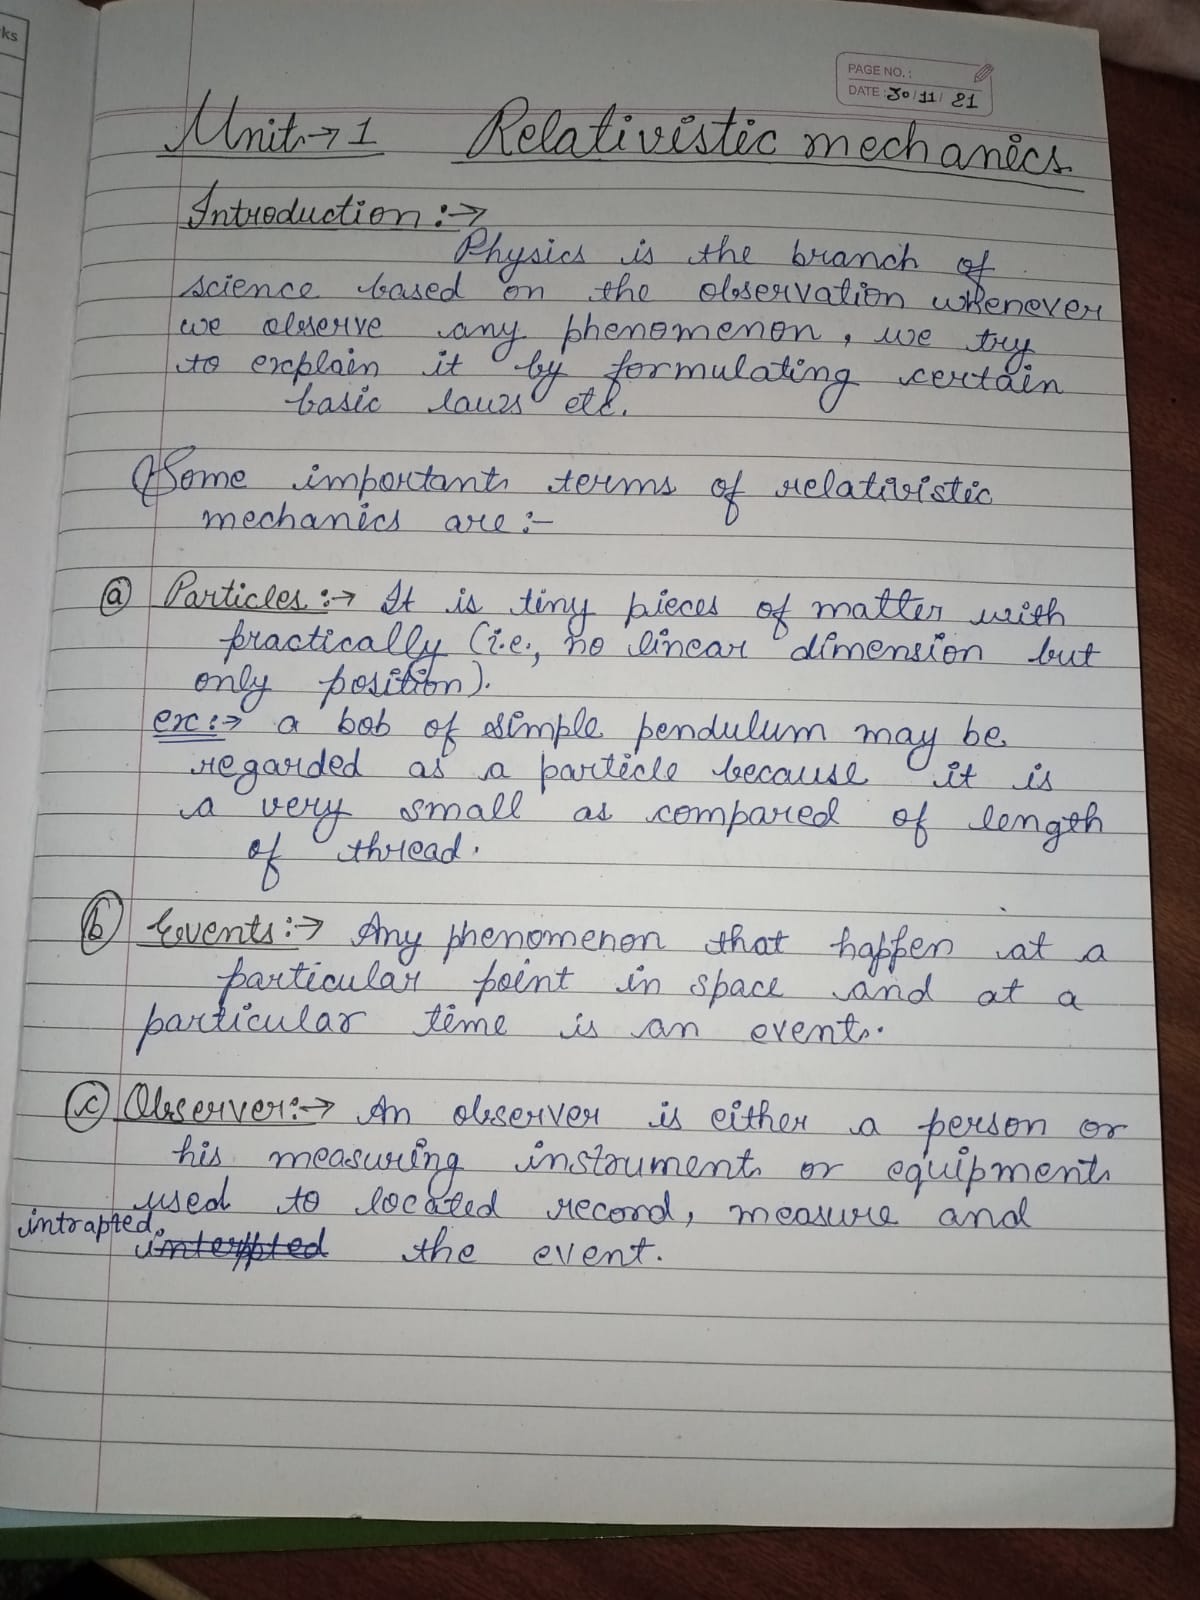 ks
PAGE NO.:
DATE: 30/11/21
Unit → 1 Relativistic mechanics
Introduction :→
Physics is the branch of
science based on the observation whenever
we observe any phenomenon, we try
to explain it by formulating certain
basic laws etc.
Some important terms of relativistic
mechanics are :-
(a) Particles :→ It is tiny pieces of matter with
practically (i.e., no linear dimension but
only position).
ex :→ a bob of simple pendulum may be
regarded as a particle because it is
a very small as compared of length
of thread.
(b) Events :→ Any phenomenon that happen at a
particular point in space and at a
particular time is an event.
(c) Observer :→ An observer is either a person or
his measuring instrument or equipment
used to located record, measure and
intrapted the event.